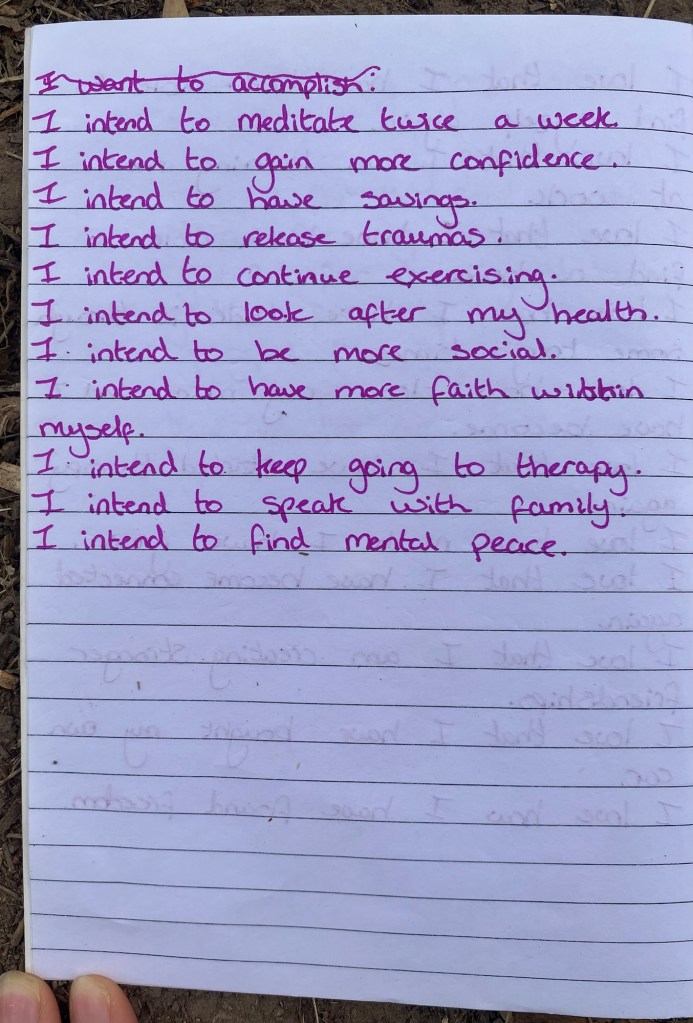 I want to accomplish:
I intend to meditate twice a week.
I intend to gain more confidence.
I intend to have savings.
I intend to release traumas.
I intend to continue exercising.
I intend to look after my health.
I intend to be more social.
I intend to have more faith within
myself.
I intend to keep going to therapy.
I intend to speak with family.
I intend to find mental peace.